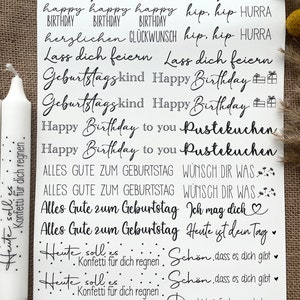 happy happy happy hip, hip HURRA
BIRTHDAY BIRTHDAY BIRTHDAY hip, hip HURRA
herzlichen GLÜCKWUNSCH
Lass dich feiern Lass dich feiern
Geburtstagskind Happy Birthday
Geburtstagskind Happy Birthday
Happy Birthday to you Pustekuchen
Happy Birthday to you Pustekuchen
ALLES GUTE ZUM GEBURTSTAG WÜNSCH DIR WAS
ALLES GUTE ZUM GEBURTSTAG WÜNSCH DIR WAS
Alles Gute zum Geburtstag Ich mag dich
Alles Gute zum Geburtstag Heute ist dein Tag
Heute soll es
Konfetti für dich regnen Schön, dass es dich gibt
Heute soll es
Konfetti für dich regnen Schön, dass es dich gibt
Heute soll es
Konfetti für dich regnen